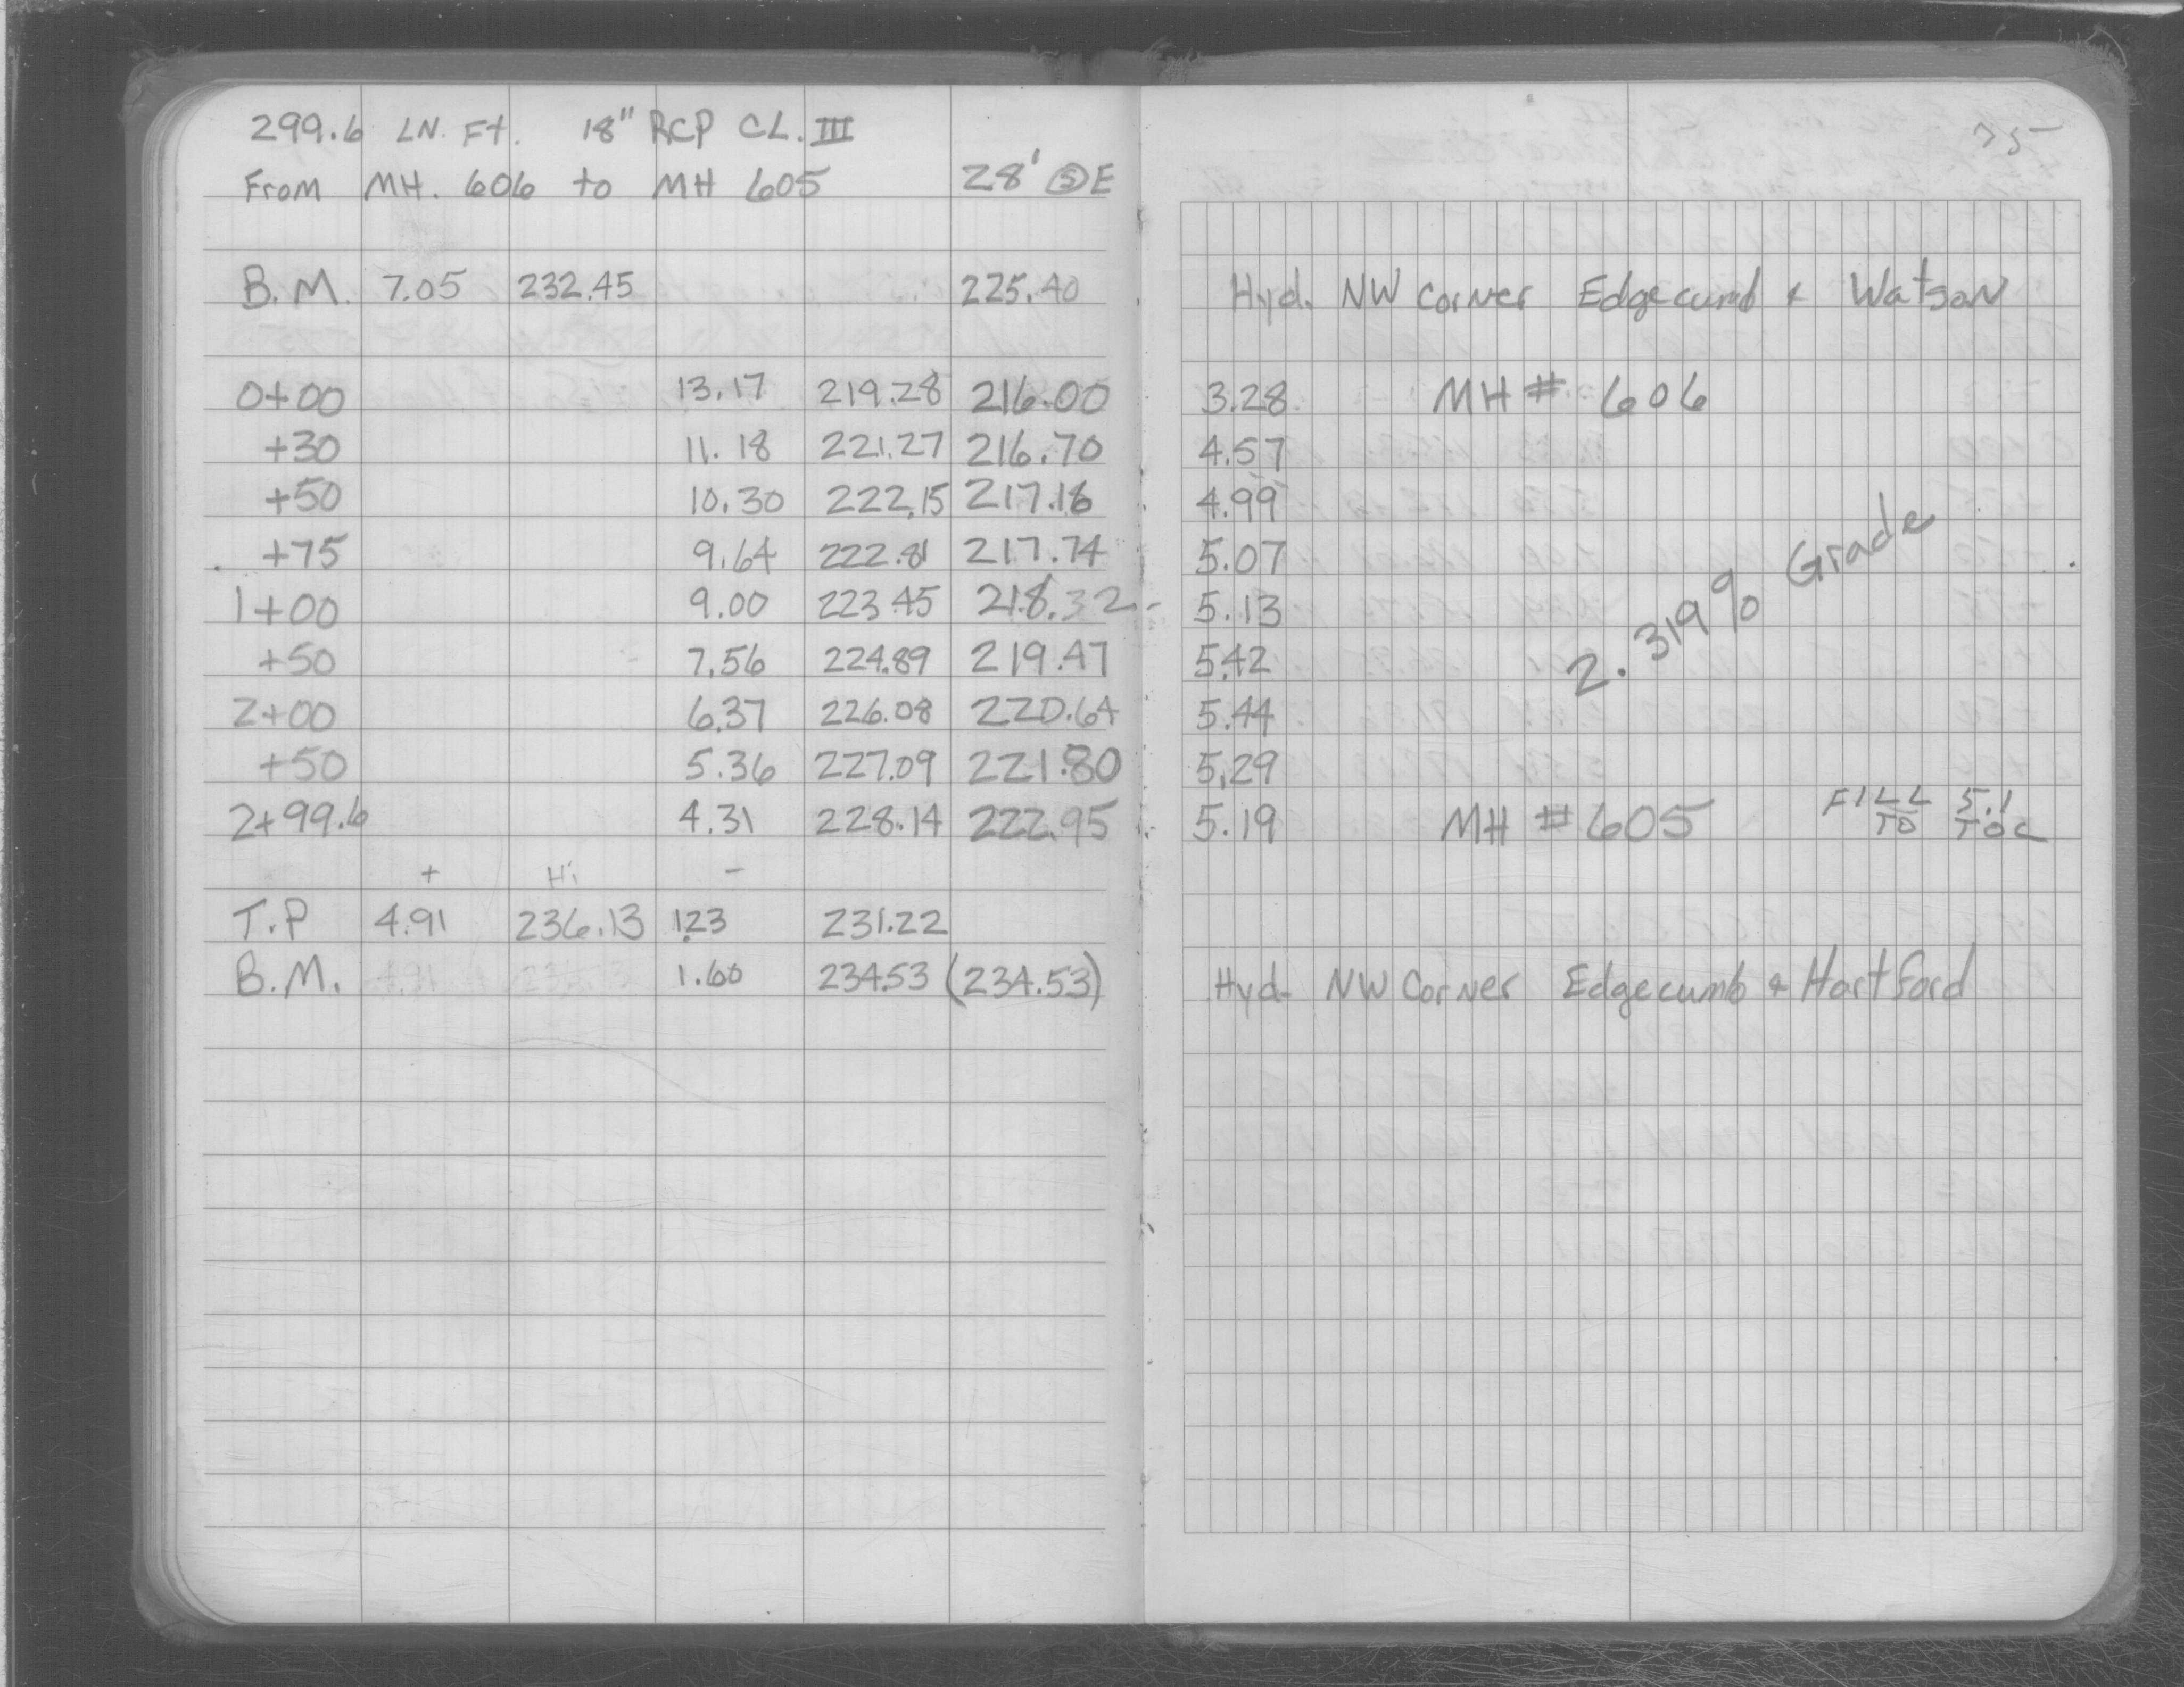 299.6 LN. Ft. 18" RCP CL. III
From MH. 606 to MH 605 28' Ⓢ E
75
B.M. 7.05 232.45 225.40 Hyd. NW Corner Edgecumb & Watson
0+00 13.17 219.28 216.00 3.28 MH # 606
+30 11.18 221.27 216.70 4.57
+50 10.30 222.15 217.16 4.99
+75 9.64 222.81 217.74 5.07
1+00 9.00 223.45 218.32 5.13
+50 7.56 224.89 219.47 5.42
2+00 6.37 226.08 220.64 5.44
+50 5.36 227.09 221.80 5.29
2+99.6 4.31 228.14 222.95 5.19 MH # 605 FILL 5.1
TO TOC
2.319% Grade
+ Hi -
T.P 4.91 236.13 1.23 231.22
B.M. 1.60 234.53 (234.53) Hyd- NW Corner Edgecumb & Hartford